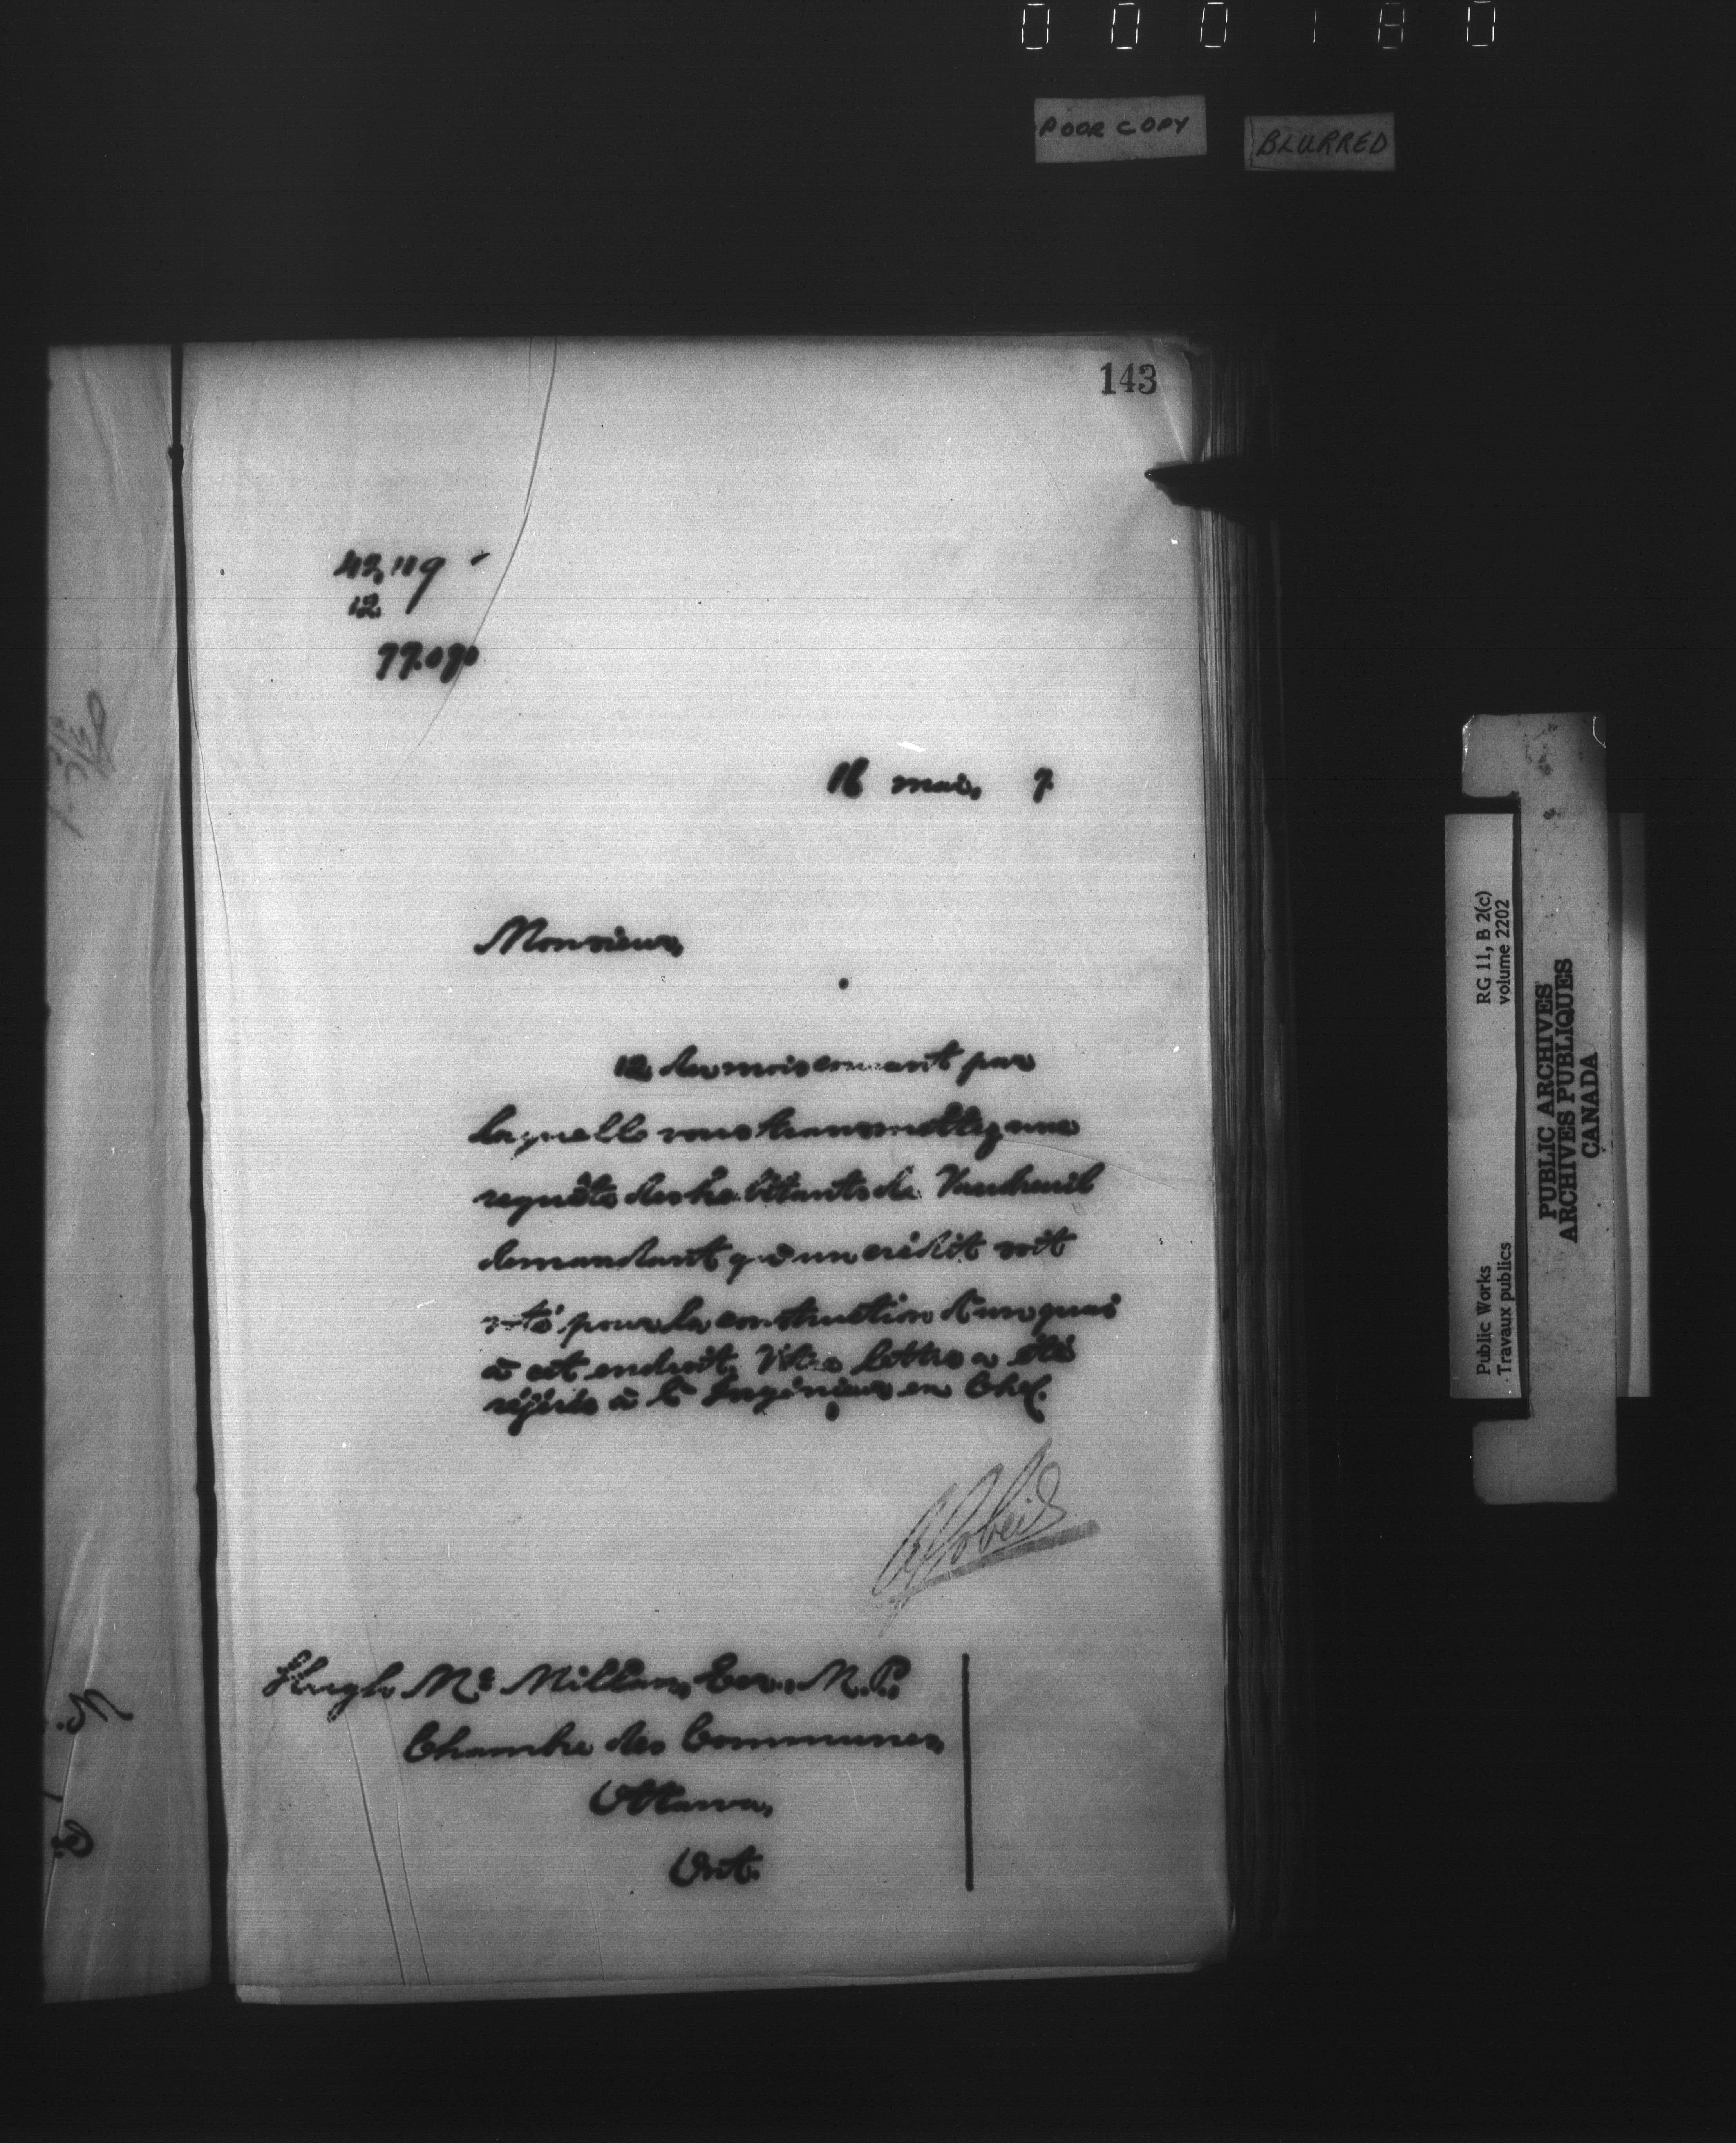 000180
POOR COPY
BLURRED
143
42,119
12
77.070
16 mai, 7
Monsieur,
12 du mois courant par
laquelle vous transmettez une
requête des habitants de Vaudreuil
demandant qu'un crédit soit
voté pour la construction d'un quai
à cet endroit. Votre lettre a été
référée à l'Ingénieur en Chef.
AGobeil
Hugh Mc Millan, Ecr., M.P.,
Chambre des Communes,
Ottawa,
Ont.
Public Works
Travaux publics
RG 11, B 2(c)
volume 2202
PUBLIC ARCHIVES
ARCHIVES PUBLIQUES
CANADA